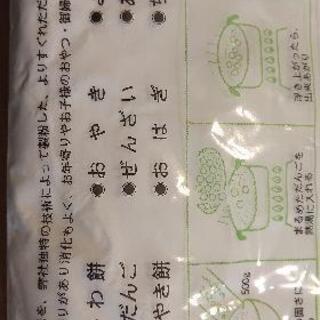 を、弊社独特の技術によって製粉した、よりすぐれただ
りがあり消化もよく、お年寄りやお子様のおやつ・御婦
わ餅 ●おやき ●
だんご ●ぜんざい ●
やき餅 ●おはぎ ●
500g
固さに
まるめただんごを
熱湯に入れる
浮き上がったら、
出来あがり